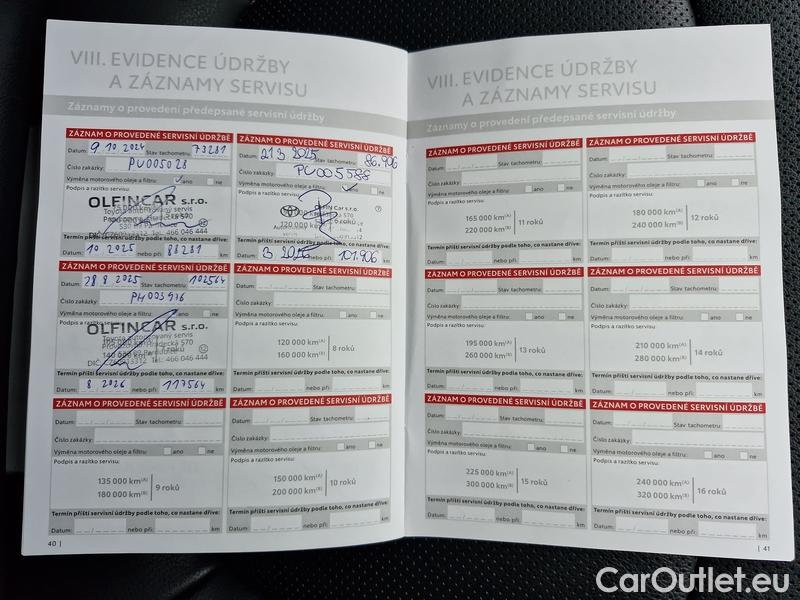 VIII. EVIDENCE ÚDRŽBY
A ZÁZNAMY SERVISU
Záznamy o provedení předepsané servisní údržby
ZÁZNAM O PROVEDENÉ SERVISNÍ ÚDRŽBĚ
Datum: 9.10.2024 Stav tachometru: 73281
Číslo zakázky: PU005028
Výměna motorového oleje a filtru: ano ne
Podpis a razítko servisu:
OLFINCAR s.r.o.
Termín příští servisní údržby podle toho, co nastane dříve:
10 2025 88281
ZÁZNAM O PROVEDENÉ SERVISNÍ ÚDRŽBĚ
Datum: 21 3 2025 Stav tachometru: 86.906
Číslo zakázky: PU005588
Výměna motorového oleje a filtru: ano ne
Podpis a razítko servisu:
Termín příští servisní údržby podle toho, co nastane dříve:
3 2026 101.906
ZÁZNAM O PROVEDENÉ SERVISNÍ ÚDRŽBĚ
Datum: 28 8 2025 Stav tachometru: 102564
Číslo zakázky:
Výměna motorového oleje a filtru: ano ne
Podpis a razítko servisu:
OLFINCAR s.r.o.
Tel.: 466 046 444
Termín příští servisní údržby podle toho, co nastane dříve:
Datum: 8 2026 nebo při: 117564 km
ZÁZNAM O PROVEDENÉ SERVISNÍ ÚDRŽBĚ
Datum: Stav tachometru: km
Číslo zakázky:
Výměna motorového oleje a filtru: ano ne
Podpis a razítko servisu:
120 000 km(A)
160 000 km(B)
8 roků
Termín příští servisní údržby podle toho, co nastane dříve:
Datum: nebo při: km
ZÁZNAM O PROVEDENÉ SERVISNÍ ÚDRŽBĚ
Datum: Stav tachometru: km
Číslo zakázky:
Výměna motorového oleje a filtru: ano ne
Podpis a razítko servisu:
135 000 km(A)
180 000 km(B)
9 roků
Termín příští servisní údržby podle toho, co nastane dříve:
Datum: nebo při: km
ZÁZNAM O PROVEDENÉ SERVISNÍ ÚDRŽBĚ
Datum: Stav tachometru: km
Číslo zakázky:
Výměna motorového oleje a filtru: ano ne
Podpis a razítko servisu:
150 000 km(A)
200 000 km(B)
10 roků
Termín příští servisní údržby podle toho, co nastane dříve:
Datum: nebo při: km
40 |
VIII. EVIDENCE ÚDRŽBY
A ZÁZNAMY SERVISU
Záznamy o provedení předepsané servisní údržby
ZÁZNAM O PROVEDENÉ SERVISNÍ ÚDRŽBĚ
Datum: Stav tachometru: km
Číslo zakázky:
Výměna motorového oleje a filtru: ano ne
Podpis a razítko servisu:
165 000 km(A)
220 000 km(B)
11 roků
Termín příští servisní údržby podle toho, co nastane dříve:
Datum: nebo při: km
ZÁZNAM O PROVEDENÉ SERVISNÍ ÚDRŽBĚ
Datum: Stav tachometru: km
Číslo zakázky:
Výměna motorového oleje a filtru: ano ne
Podpis a razítko servisu:
180 000 km(A)
240 000 km(B)
12 roků
Termín příští servisní údržby podle toho, co nastane dříve:
Datum: nebo při: km
ZÁZNAM O PROVEDENÉ SERVISNÍ ÚDRŽBĚ
Datum: Stav tachometru: km
Číslo zakázky:
Výměna motorového oleje a filtru: ano ne
Podpis a razítko servisu:
195 000 km(A)
260 000 km(B)
13 roků
Termín příští servisní údržby podle toho, co nastane dříve:
Datum: nebo při: km
ZÁZNAM O PROVEDENÉ SERVISNÍ ÚDRŽBĚ
Datum: Stav tachometru: km
Číslo zakázky:
Výměna motorového oleje a filtru: ano ne
Podpis a razítko servisu:
210 000 km(A)
280 000 km(B)
14 roků
Termín příští servisní údržby podle toho, co nastane dříve:
Datum: nebo při: km
ZÁZNAM O PROVEDENÉ SERVISNÍ ÚDRŽBĚ
Datum: Stav tachometru: km
Číslo zakázky:
Výměna motorového oleje a filtru: ano ne
Podpis a razítko servisu:
225 000 km(A)
300 000 km(B)
15 roků
Termín příští servisní údržby podle toho, co nastane dříve:
Datum: nebo při: km
ZÁZNAM O PROVEDENÉ SERVISNÍ ÚDRŽBĚ
Datum: Stav tachometru: km
Číslo zakázky:
Výměna motorového oleje a filtru: ano ne
Podpis a razítko servisu:
240 000 km(A)
320 000 km(B)
16 roků
Termín příští servisní údržby podle toho, co nastane dříve:
Datum: nebo při: km
| 41
CarOutlet.eu